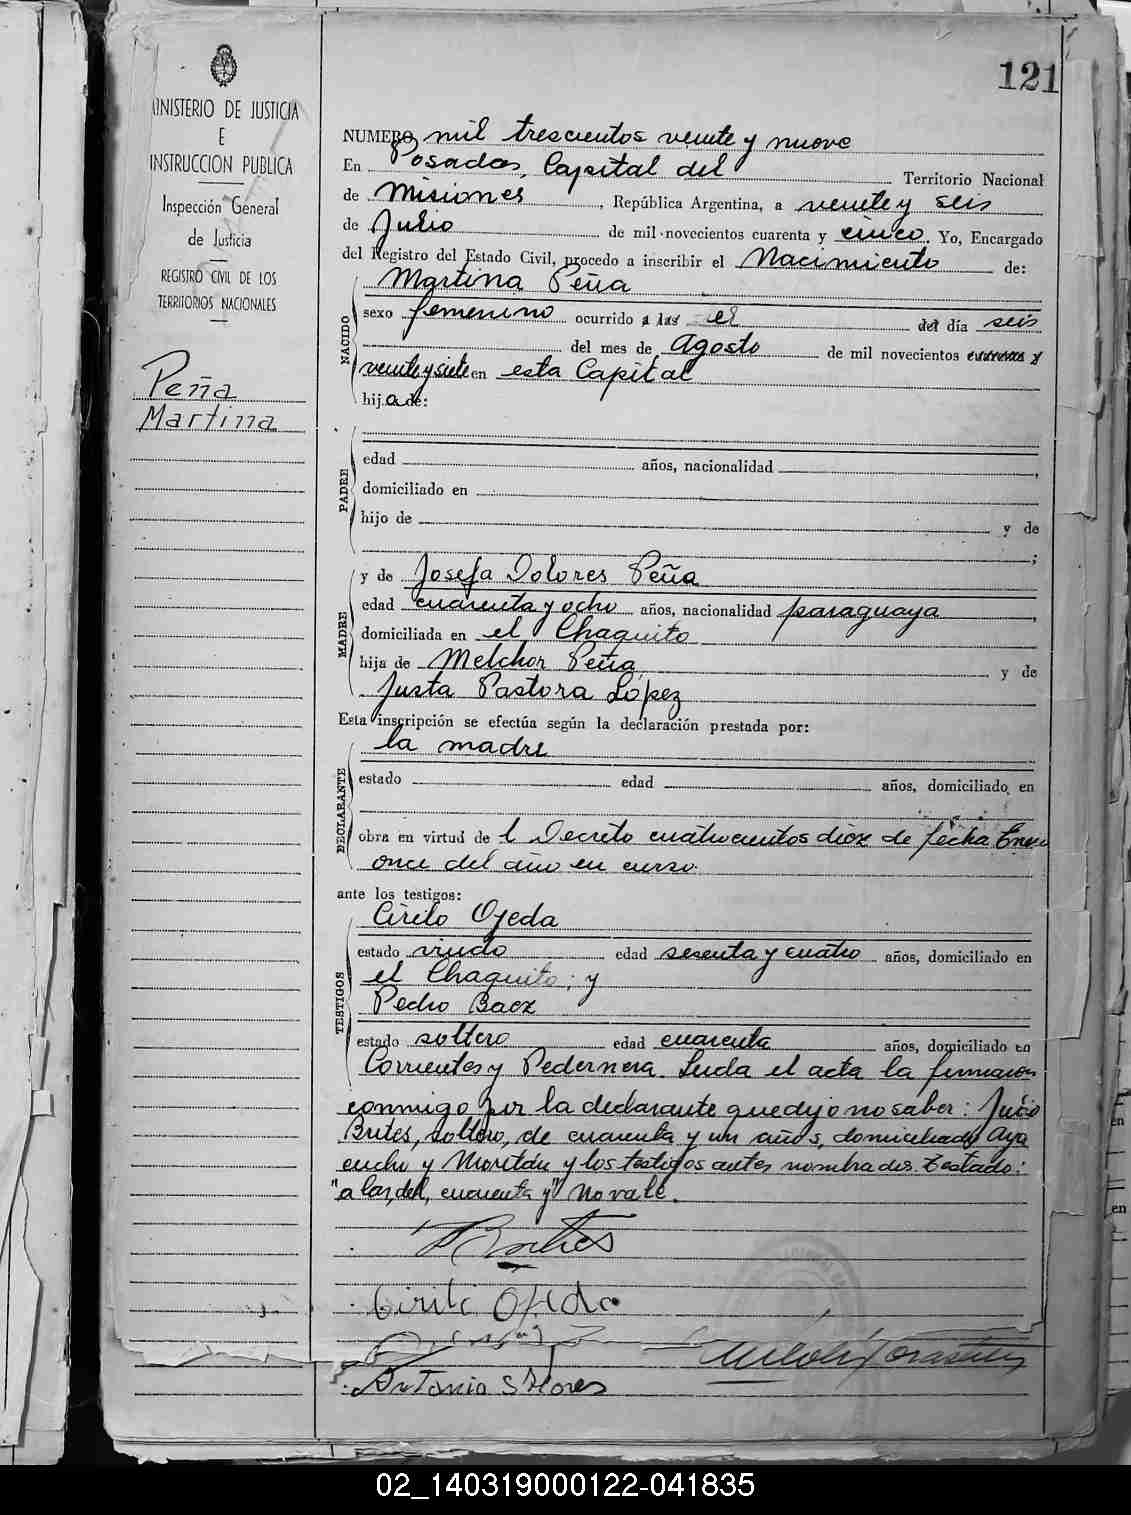 121
MINISTERIO DE JUSTICIA
E
INSTRUCCION PUBLICA
Inspección General
de Justicia
REGISTRO CIVIL DE LOS
TERRITORIOS NACIONALES
Peña
Martina
NUMERO mil trescientos veinte y nueve
En Posadas, Capital del Territorio Nacional
de Misiones, República Argentina, a veinte y seis
de Julio de mil novecientos cuarenta y cinco. Yo, Encargado
del Registro del Estado Civil, procedo a inscribir el Nacimiento de:
NACIDO
Martina Peña
sexo femenino ocurrido a las el del día seis
del mes de Agosto de mil novecientos cuarenta y
veinte y siete en esta Capital
hija de:
PADRE
edad años, nacionalidad ,
domiciliado en
hijo de y de
;
MADRE
y de Josefa Dolores Peña
edad cuarenta y ocho años, nacionalidad paraguaya,
domiciliada en el Chaquito
hija de Melchor Peña y de
Justa Pastora López
Esta inscripción se efectúa según la declaración prestada por:
DECLARANTE
la madre
estado edad años, domiciliado en
obra en virtud de l Decreto cuatrocientos diez de fecha Enero
once del año en curso.
ante los testigos:
TESTIGOS
Cirilo Ojeda
estado viudo edad sesenta y cuatro años, domiciliado en
el Chaquito; y
Pedro Baez
estado soltero edad cuarenta años, domiciliado en
Corrientes y Pedernera. Leida el acta la firmaron
conmigo, por la declarante que dijo no saber: Julio
Brites, soltero, de cuarenta y un años, domiciliado Aya
cucho y Moritán y los testigos antes nombrados. Testado:
"a las, del, cuarenta y" No vale.
Brites
Cirilo Ojeda
Antonio S Flores
02_140319000122-041835